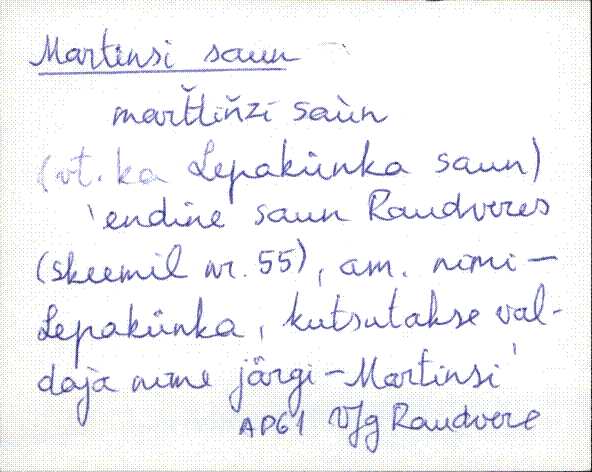 Martinsi saun
mar̆t̆t̆iňzi saùn
(vt. ka Lepakünka saun)
'endine saun Raudveres
(skeemil nr. 55), am. nimi –
Lepakünka, kutsutakse val-
daja nime järgi – Martinsi
AP61 VJg Raudvere